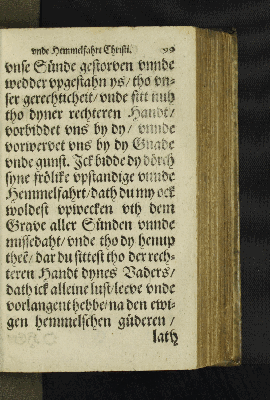 vnde Hemmelfahrt Christi.
vnse Sünde gestorven vnnde
wedder vpgestahn ys/ tho vn-
ser gerechticheit/ vnde sitt nuh
tho dyner rechteren Handt/
vorbiddet vns by dy/ vnnde
vorwervet vns by dy Gnade
vnde gunst. Jck bidde dy dörch
syne frölike vpstandige vnnde
Hemmelfahrt/ dath du my ock
woldest vpwecken vth dem
Grave aller Sünden vnnde
missedaht/ vnde tho dy henup
theē/ dar du sittest tho der rech-
teren Handt dynes Vaders/
dath ick alleine lust/ leeve vnde
vorlangent hebbe/ na den ewi-
gen hemmelschen güderen/
lath